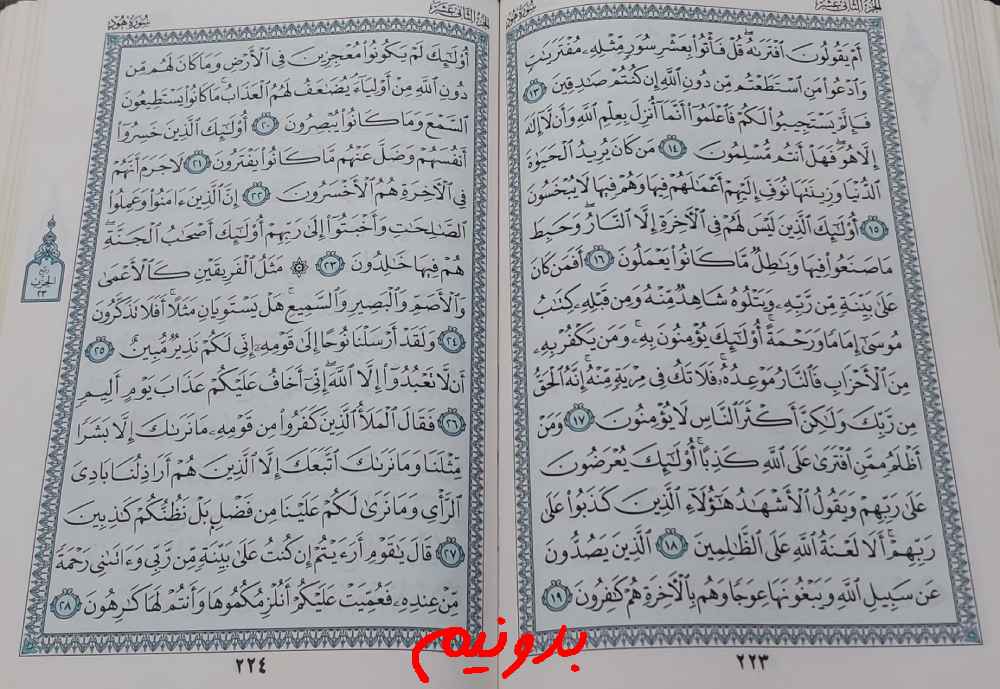 الجزء الثاني عشر
سورة هود
أَمْ يَقُولُونَ ٱفْتَرَىٰهُ ۖ قُلْ فَأْتُوا۟ بِعَشْرِ سُوَرٍ مِّثْلِهِۦ مُفْتَرَيَٰتٍ
وَٱدْعُوا۟ مَنِ ٱسْتَطَعْتُم مِّن دُونِ ٱللَّهِ إِن كُنتُمْ صَٰدِقِينَ ١٣
فَإِلَّمْ يَسْتَجِيبُوا۟ لَكُمْ فَٱعْلَمُوٓا۟ أَنَّمَآ أُنزِلَ بِعِلْمِ ٱللَّهِ وَأَن لَّآ إِلَٰهَ
إِلَّا هُوَ ۖ فَهَلْ أَنتُم مُّسْلِمُونَ ١٤ مَن كَانَ يُرِيدُ ٱلْحَيَوٰةَ
ٱلدُّنْيَا وَزِينَتَهَا نُوَفِّ إِلَيْهِمْ أَعْمَٰلَهُمْ فِيهَا وَهُمْ فِيهَا لَا يُبْخَسُونَ
١٥ أُو۟لَٰٓئِكَ ٱلَّذِينَ لَيْسَ لَهُمْ فِى ٱلْءَاخِرَةِ إِلَّا ٱلنَّارُ ۖ وَحَبِطَ
مَا صَنَعُوا۟ فِيهَا وَبَٰطِلٌ مَّا كَانُوا۟ يَعْمَلُونَ ١٦ أَفَمَن كَانَ
عَلَىٰ بَيِّنَةٍ مِّن رَّبِّهِۦ وَيَتْلُوهُ شَاهِدٌ مِّنْهُ وَمِن قَبْلِهِۦ كِتَٰبُ
مُوسَىٰٓ إِمَامًا وَرَحْمَةً ۚ أُو۟لَٰٓئِكَ يُؤْمِنُونَ بِهِۦ ۚ وَمَن يَكْفُرْ بِهِۦ
مِنَ ٱلْأَحْزَابِ فَٱلنَّارُ مَوْعِدُهُۥ ۚ فَلَا تَكُ فِى مِرْيَةٍ مِّنْهُ ۚ إِنَّهُ ٱلْحَقُّ
مِن رَّبِّكَ وَلَٰكِنَّ أَكْثَرَ ٱلنَّاسِ لَا يُؤْمِنُونَ ١٧ وَمَنْ
أَظْلَمُ مِمَّنِ ٱفْتَرَىٰ عَلَى ٱللَّهِ كَذِبًا ۚ أُو۟لَٰٓئِكَ يُعْرَضُونَ
عَلَىٰ رَبِّهِمْ وَيَقُولُ ٱلْأَشْهَٰدُ هَٰٓؤُلَآءِ ٱلَّذِينَ كَذَبُوا۟ عَلَىٰ
رَبِّهِمْ ۚ أَلَا لَعْنَةُ ٱللَّهِ عَلَى ٱلظَّٰلِمِينَ ١٨ ٱلَّذِينَ يَصُدُّونَ
عَن سَبِيلِ ٱللَّهِ وَيَبْغُونَهَا عِوَجًا وَهُم بِٱلْءَاخِرَةِ هُمْ كَٰفِرُونَ ١٩
٢٢٣
الجزء الثاني عشر
سورة هود
أُو۟لَٰٓئِكَ لَمْ يَكُونُوا۟ مُعْجِزِينَ فِى ٱلْأَرْضِ وَمَا كَانَ لَهُم مِّن
دُونِ ٱللَّهِ مِنْ أَوْلِيَآءَ ۘ يُضَٰعَفُ لَهُمُ ٱلْعَذَابُ ۚ مَا كَانُوا۟ يَسْتَطِيعُونَ
ٱلسَّمْعَ وَمَا كَانُوا۟ يُبْصِرُونَ ٢٠ أُو۟لَٰٓئِكَ ٱلَّذِينَ خَسِرُوٓا۟
أَنفُسَهُمْ وَضَلَّ عَنْهُم مَّا كَانُوا۟ يَفْتَرُونَ ٢١ لَا جَرَمَ أَنَّهُمْ
فِى ٱلْءَاخِرَةِ هُمُ ٱلْأَخْسَرُونَ ٢٢ إِنَّ ٱلَّذِينَ ءَامَنُوا۟ وَعَمِلُوا۟
ٱلصَّٰلِحَٰتِ وَأَخْبَتُوٓا۟ إِلَىٰ رَبِّهِمْ أُو۟لَٰٓئِكَ أَصْحَٰبُ ٱلْجَنَّةِ ۖ
هُمْ فِيهَا خَٰلِدُونَ ٢٣ ۞ مَثَلُ ٱلْفَرِيقَيْنِ كَٱلْأَعْمَىٰ
وَٱلْأَصَمِّ وَٱلْبَصِيرِ وَٱلسَّمِيعِ ۚ هَلْ يَسْتَوِيَانِ مَثَلًا ۚ أَفَلَا تَذَكَّرُونَ
٢٤ وَلَقَدْ أَرْسَلْنَا نُوحًا إِلَىٰ قَوْمِهِۦٓ إِنِّى لَكُمْ نَذِيرٌ مُّبِينٌ ٢٥
أَن لَّا تَعْبُدُوٓا۟ إِلَّا ٱللَّهَ ۖ إِنِّىٓ أَخَافُ عَلَيْكُمْ عَذَابَ يَوْمٍ أَلِيمٍ
٢٦ فَقَالَ ٱلْمَلَأُ ٱلَّذِينَ كَفَرُوا۟ مِن قَوْمِهِۦ مَا نَرَىٰكَ إِلَّا بَشَرًا
مِّثْلَنَا وَمَا نَرَىٰكَ ٱتَّبَعَكَ إِلَّا ٱلَّذِينَ هُمْ أَرَاذِلُنَا بَادِىَ
ٱلرَّأْىِ وَمَا نَرَىٰ لَكُمْ عَلَيْنَا مِن فَضْلٍۭ بَلْ نَظُنُّكُمْ كَٰذِبِينَ
٢٧ قَالَ يَٰقَوْمِ أَرَءَيْتُمْ إِن كُنتُ عَلَىٰ بَيِّنَةٍ مِّن رَّبِّى وَءَاتَىٰنِى رَحْمَةً
مِّنْ عِندِهِۦ فَعُمِّيَتْ عَلَيْكُمْ أَنُلْزِمُكُمُوهَا وَأَنتُمْ لَهَا كَٰرِهُونَ ٢٨
ربع
الحزب
٢٣
٢٢٤
بدونیم